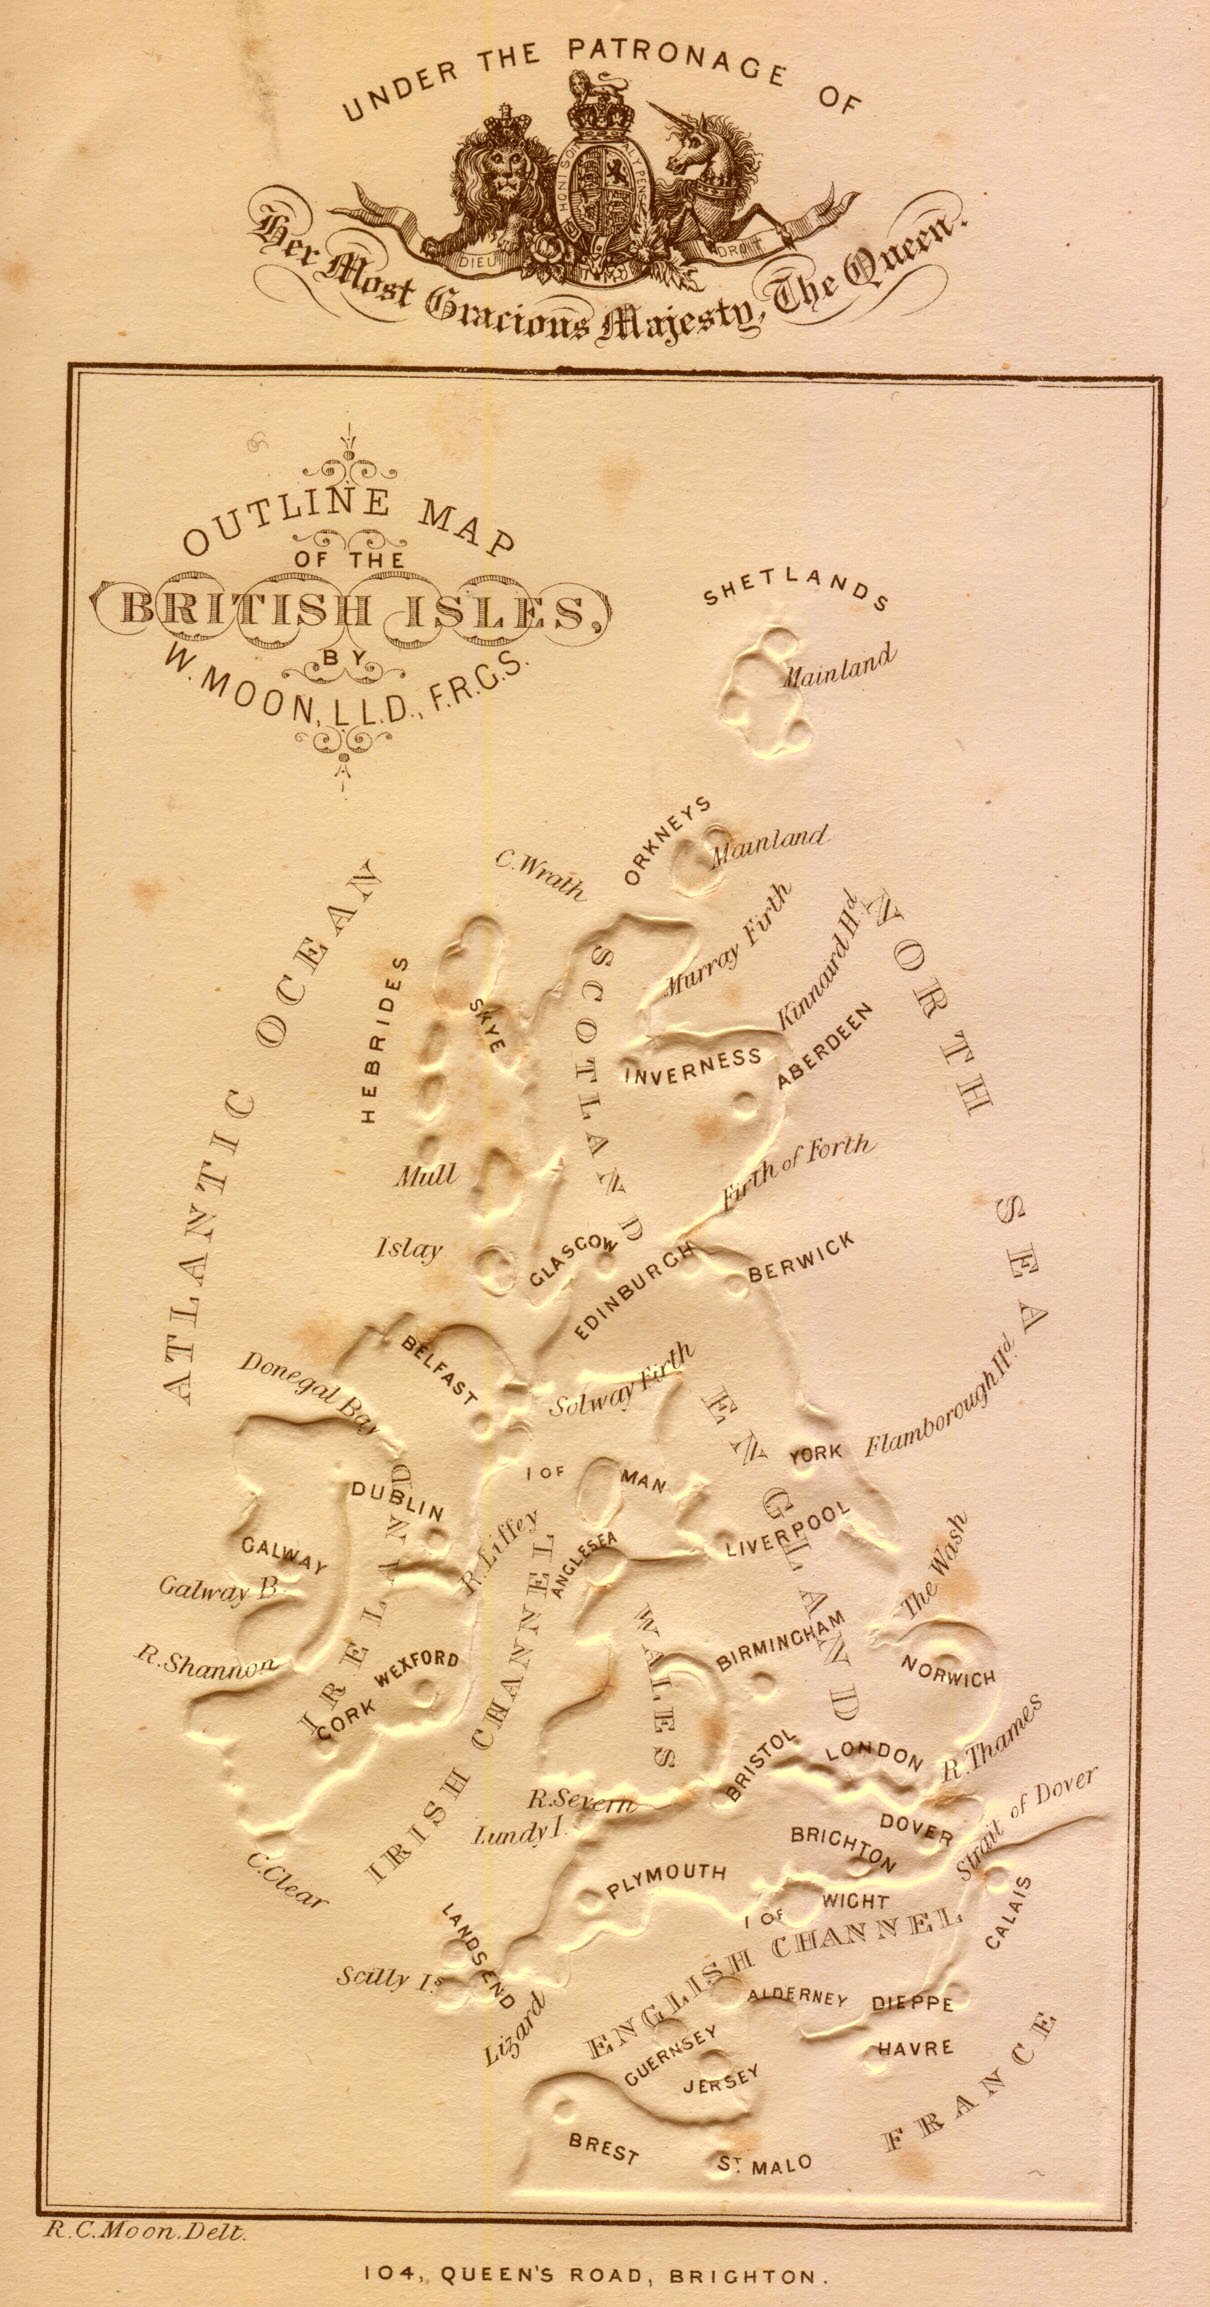 UNDER THE PATRONAGE OF
HONI SOIT
DIEU
DROIT
Her Most Gracious Majesty, The Queen.
OUTLINE MAP
OF THE
BRITISH ISLES,
BY
W. MOON, LL.D., F.R.G.S.
SHETLANDS
Mainland
ORKNEYS
Mainland
C. Wrath
Murray Firth
Kinnaird Hd.
NORTH SEA
ATLANTIC OCEAN
HEBRIDES
SKYE
SCOTLAND
INVERNESS
ABERDEEN
Mull
Firth of Forth
Islay
GLASGOW
EDINBURGH
BERWICK
BELFAST
Donegal Bay
Solway Firth
ENGLAND
Flamborough Hd.
YORK
I OF MAN
DUBLIN
IRELAND
R. Liffey
ANGLESEA
LIVERPOOL
The Wash
GALWAY
Galway B.
IRISH CHANNEL
WALES
BIRMINGHAM
NORWICH
R. Shannon
WEXFORD
CORK
BRISTOL
LONDON
R. Thames
R. Severn
Lundy I.
DOVER
Strait of Dover
BRIGHTON
C. Clear
PLYMOUTH
I OF WIGHT
CALAIS
LANDS END
ENGLISH CHANNEL
Scilly Is.
Lizard
ALDERNEY
DIEPPE
GUERNSEY
HAVRE
JERSEY
FRANCE
BREST
ST. MALO
R. C. Moon. Delt.
104, QUEEN'S ROAD, BRIGHTON.